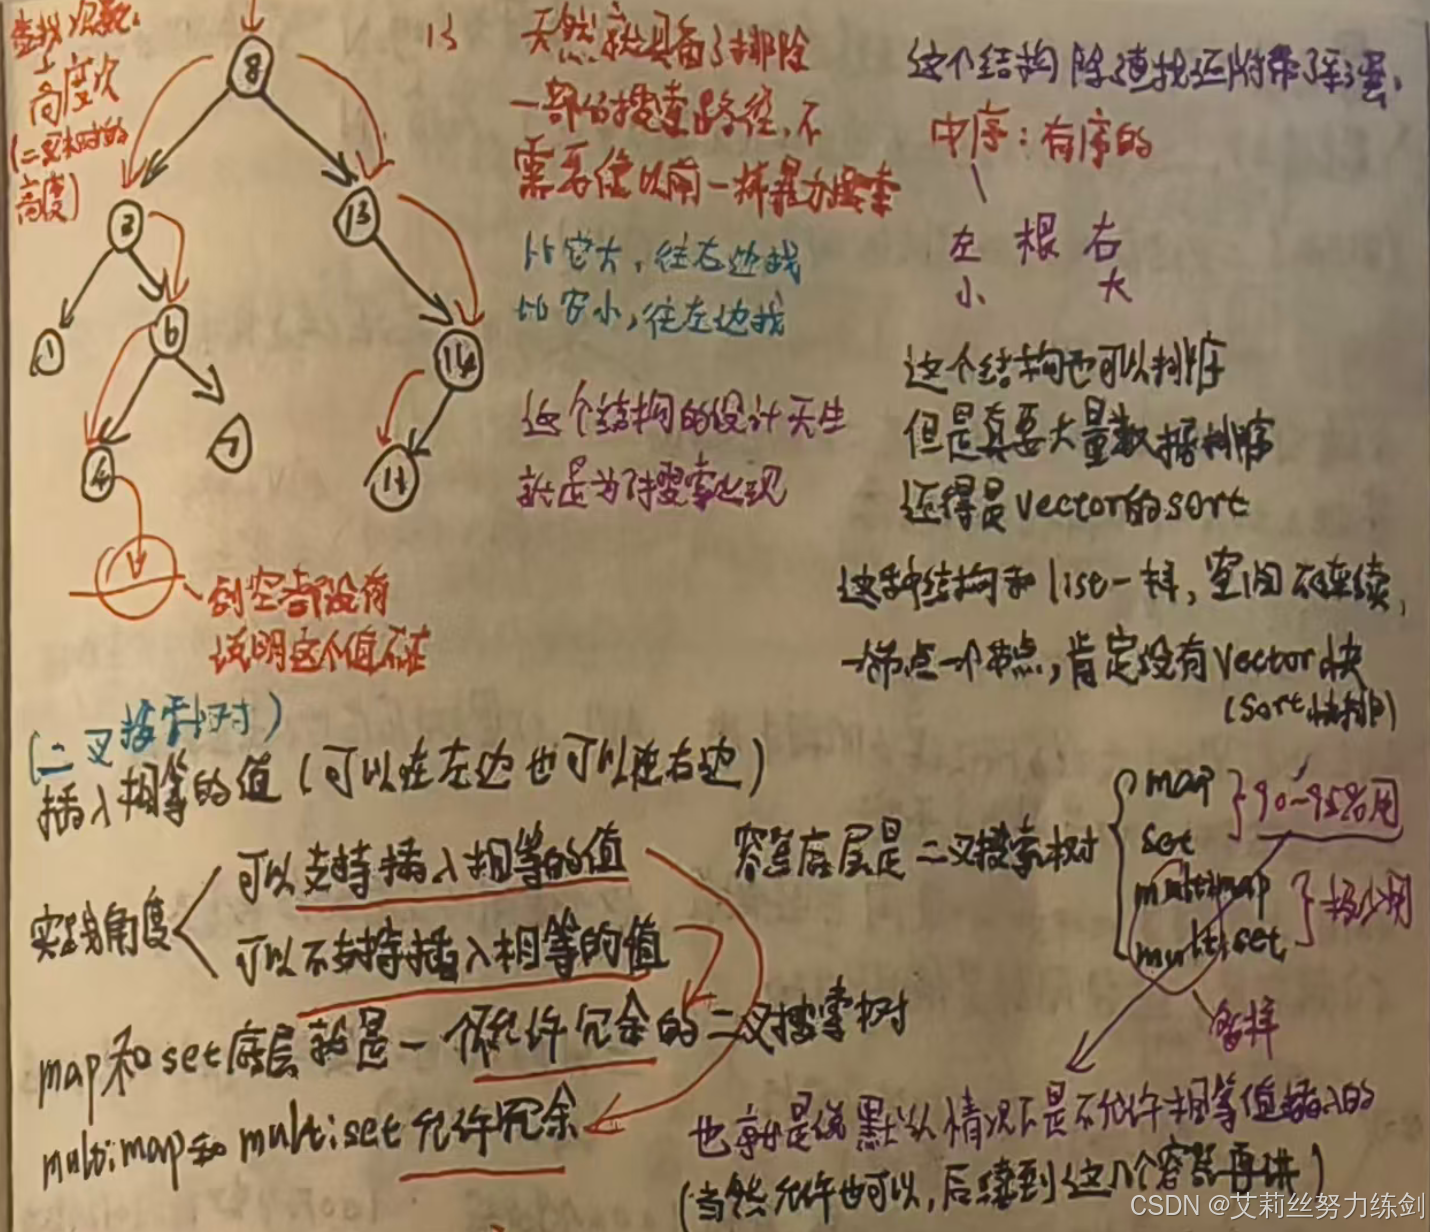 查找次数:
高度次
(二叉树的
高度)
8
3
13
1
6
14
4
7
13
到空都没有
说明这个值不在
13
天然就具备了排除
一部分搜索路径,不
需要像以前一样暴力搜索
比它大,往右边找
比它小,往左边找
这个结构的设计天生
就是为了搜索出现
这个结构除了查找还附带了彩蛋,
中序:有序的
左 根 右
小 大
这个结构也可以排序
但是真要大量数据排序
还得是vector的sort
这种结构和list一样,空间不连续,
一个节点一个节点,肯定没有vector快
(sort快排)
(二叉搜索树)
插入相等的值(可以在左边也可以在右边)
实践角度
可以支持插入相等的值
可以不支持插入相等的值
map和set底层就是一个不允许冗余的二叉搜索树
multimap和multiset允许冗余
容器底层是二叉搜索树
map
set
90~95%用
multimap
multiset
极少用
也就是说默认情况下是不允许相等值插入的
(当然允许也可以,后续到这几个容器再讲)
CSDN @艾莉丝努力练剑